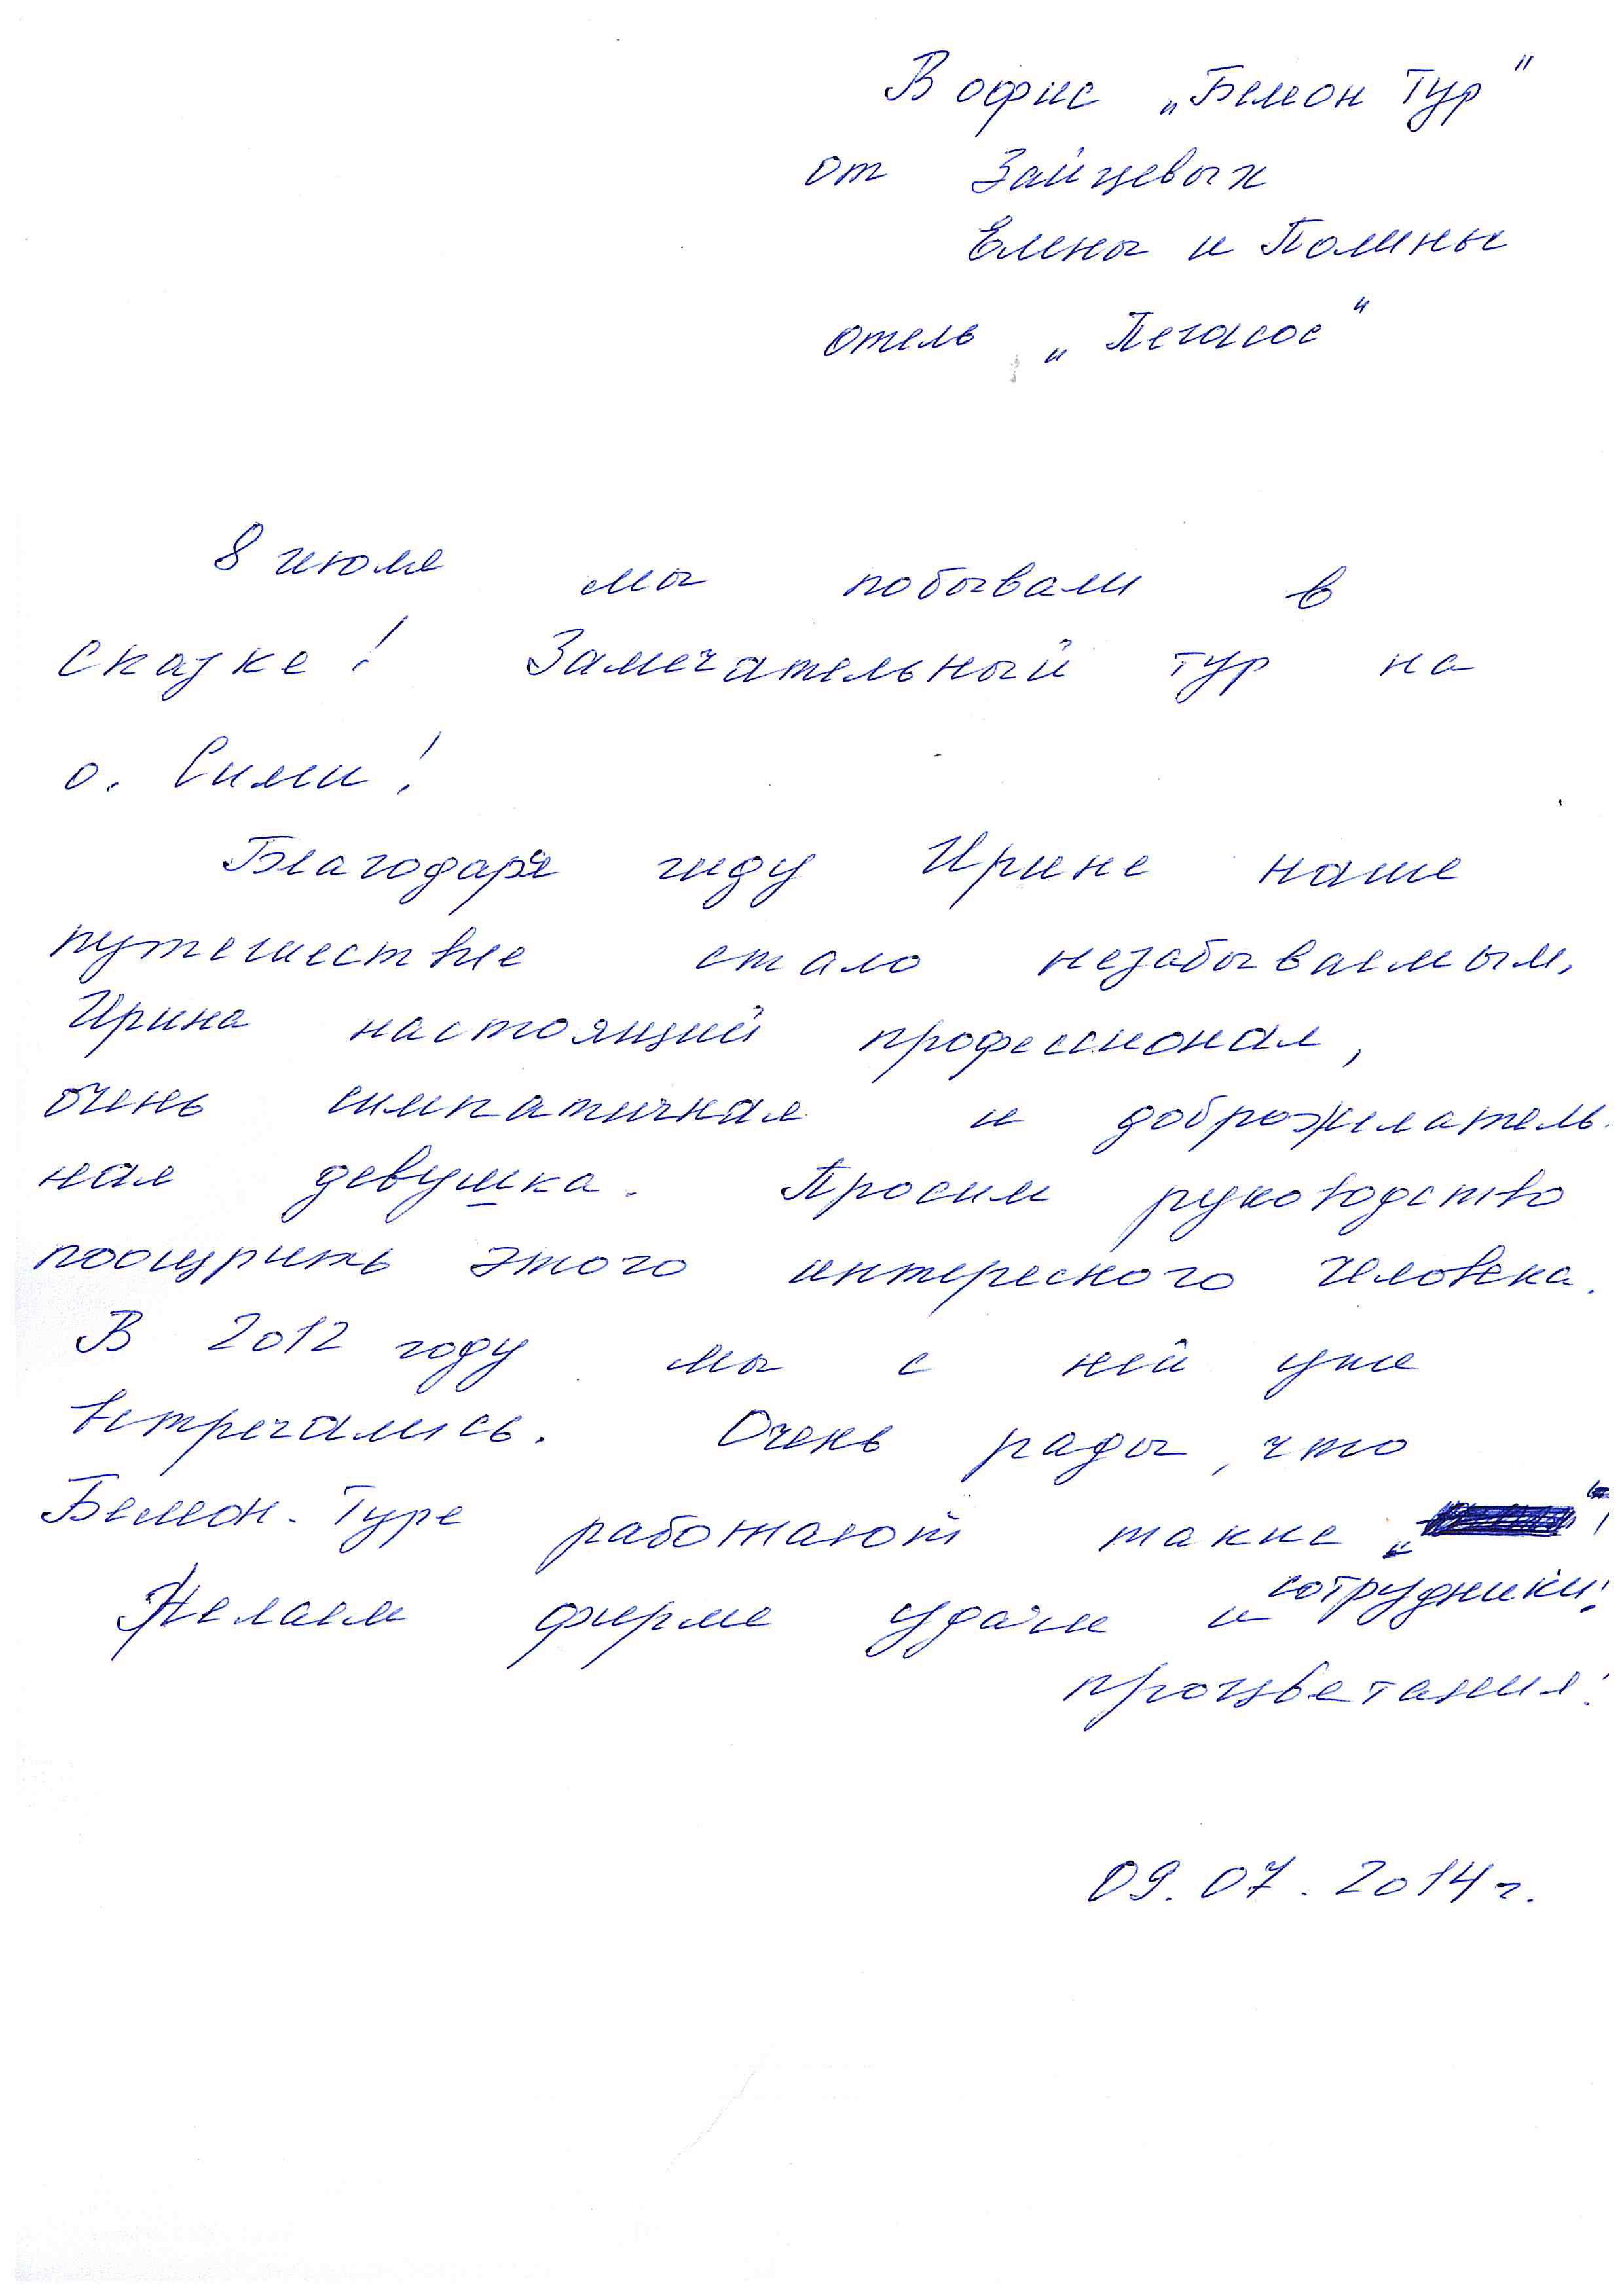 В офис „Бемон Тур"
от Зайцевых
Елены и Полины
отель „Пегасос"
8 июля мы побывали в
сказке! Замечательный тур на
о. Сими!
Благодаря гиду Ирине наше
путешествие стало незабываемым,
Ирина настоящий профессионал,
очень симпатичная и доброжелатель-
ная девушка. Просим руководство
поощрить этого интересного человека.
В 2012 году мы с ней уже
встречались. Очень рады, что
Бемон-Туре работают такие
сотрудники!
Желаем фирме удачи и
процветания!
09.07.2014г.